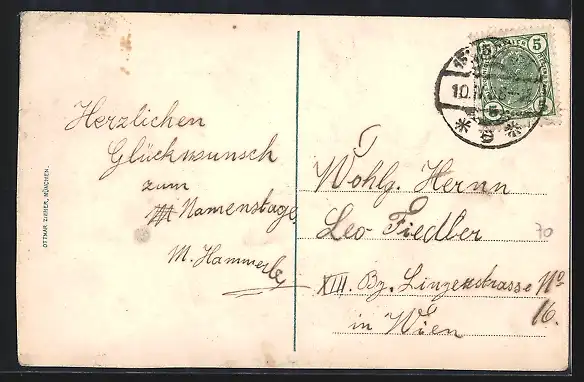 Herzlichen
Glückwunsch
zum
Namenstage
M. Hammerle
OTTMAR ZIEHER, MÜNCHEN.
5 5
5 5
10. IV
* 9 *
T
Wohlg. Herrn
Leo Fiedler
XIII. Bz. Linzerstrasse No
16.
in Wien
70